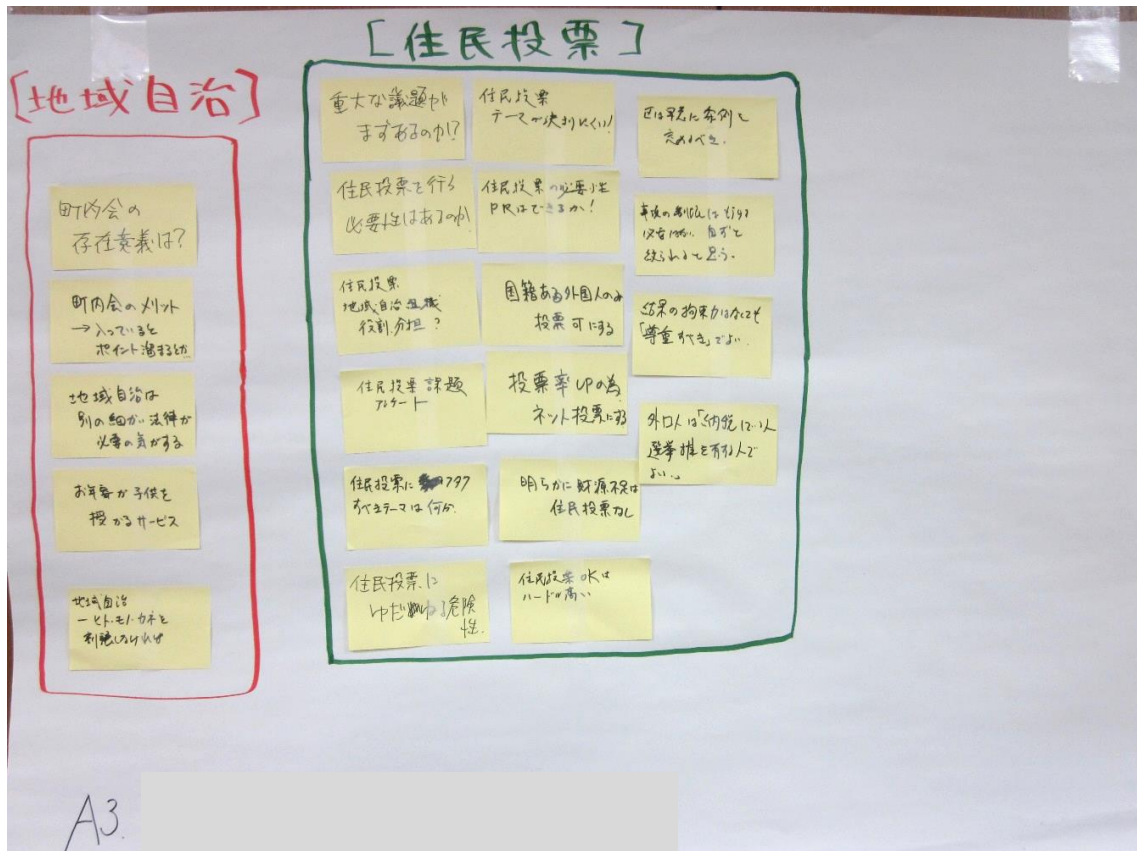 [地域自治]
町内会の
存在意義は?
町内会のメリット
→入っていると
ポイント溜まるとか
地域自治は
別の細かい法律が
必要の気がする
お年寄が子供を
授かるサービス
地域自治
ーヒト・モノ・カネを
しなければ
[住民投票]
重大な議題が
まずあるのか!?
住民投票を行う
必要性はあるのか
住民投票
地域自治組織
役割分担?
住民投票課題
アンケート
住民投票に
すべきテーマは何か
住民投票に
ゆだねる危険
性.
住民投票
テーマが決まりにくい!
住民投票の必要性
PRはできるか!
国籍ある外国人のみ
投票可にする
投票率UPの為
ネット投票にする
明らかに財源不足は
住民投票なし
住民投票OKは
ハードル高い
区は早急に条例を
定めるべき.
必要はない.自ずと
絞られると思う.
結果の拘束力はなくても
「尊重すべき」でよい.
外口人は「納税している人
選挙権を有する人で
よい.」
A3.